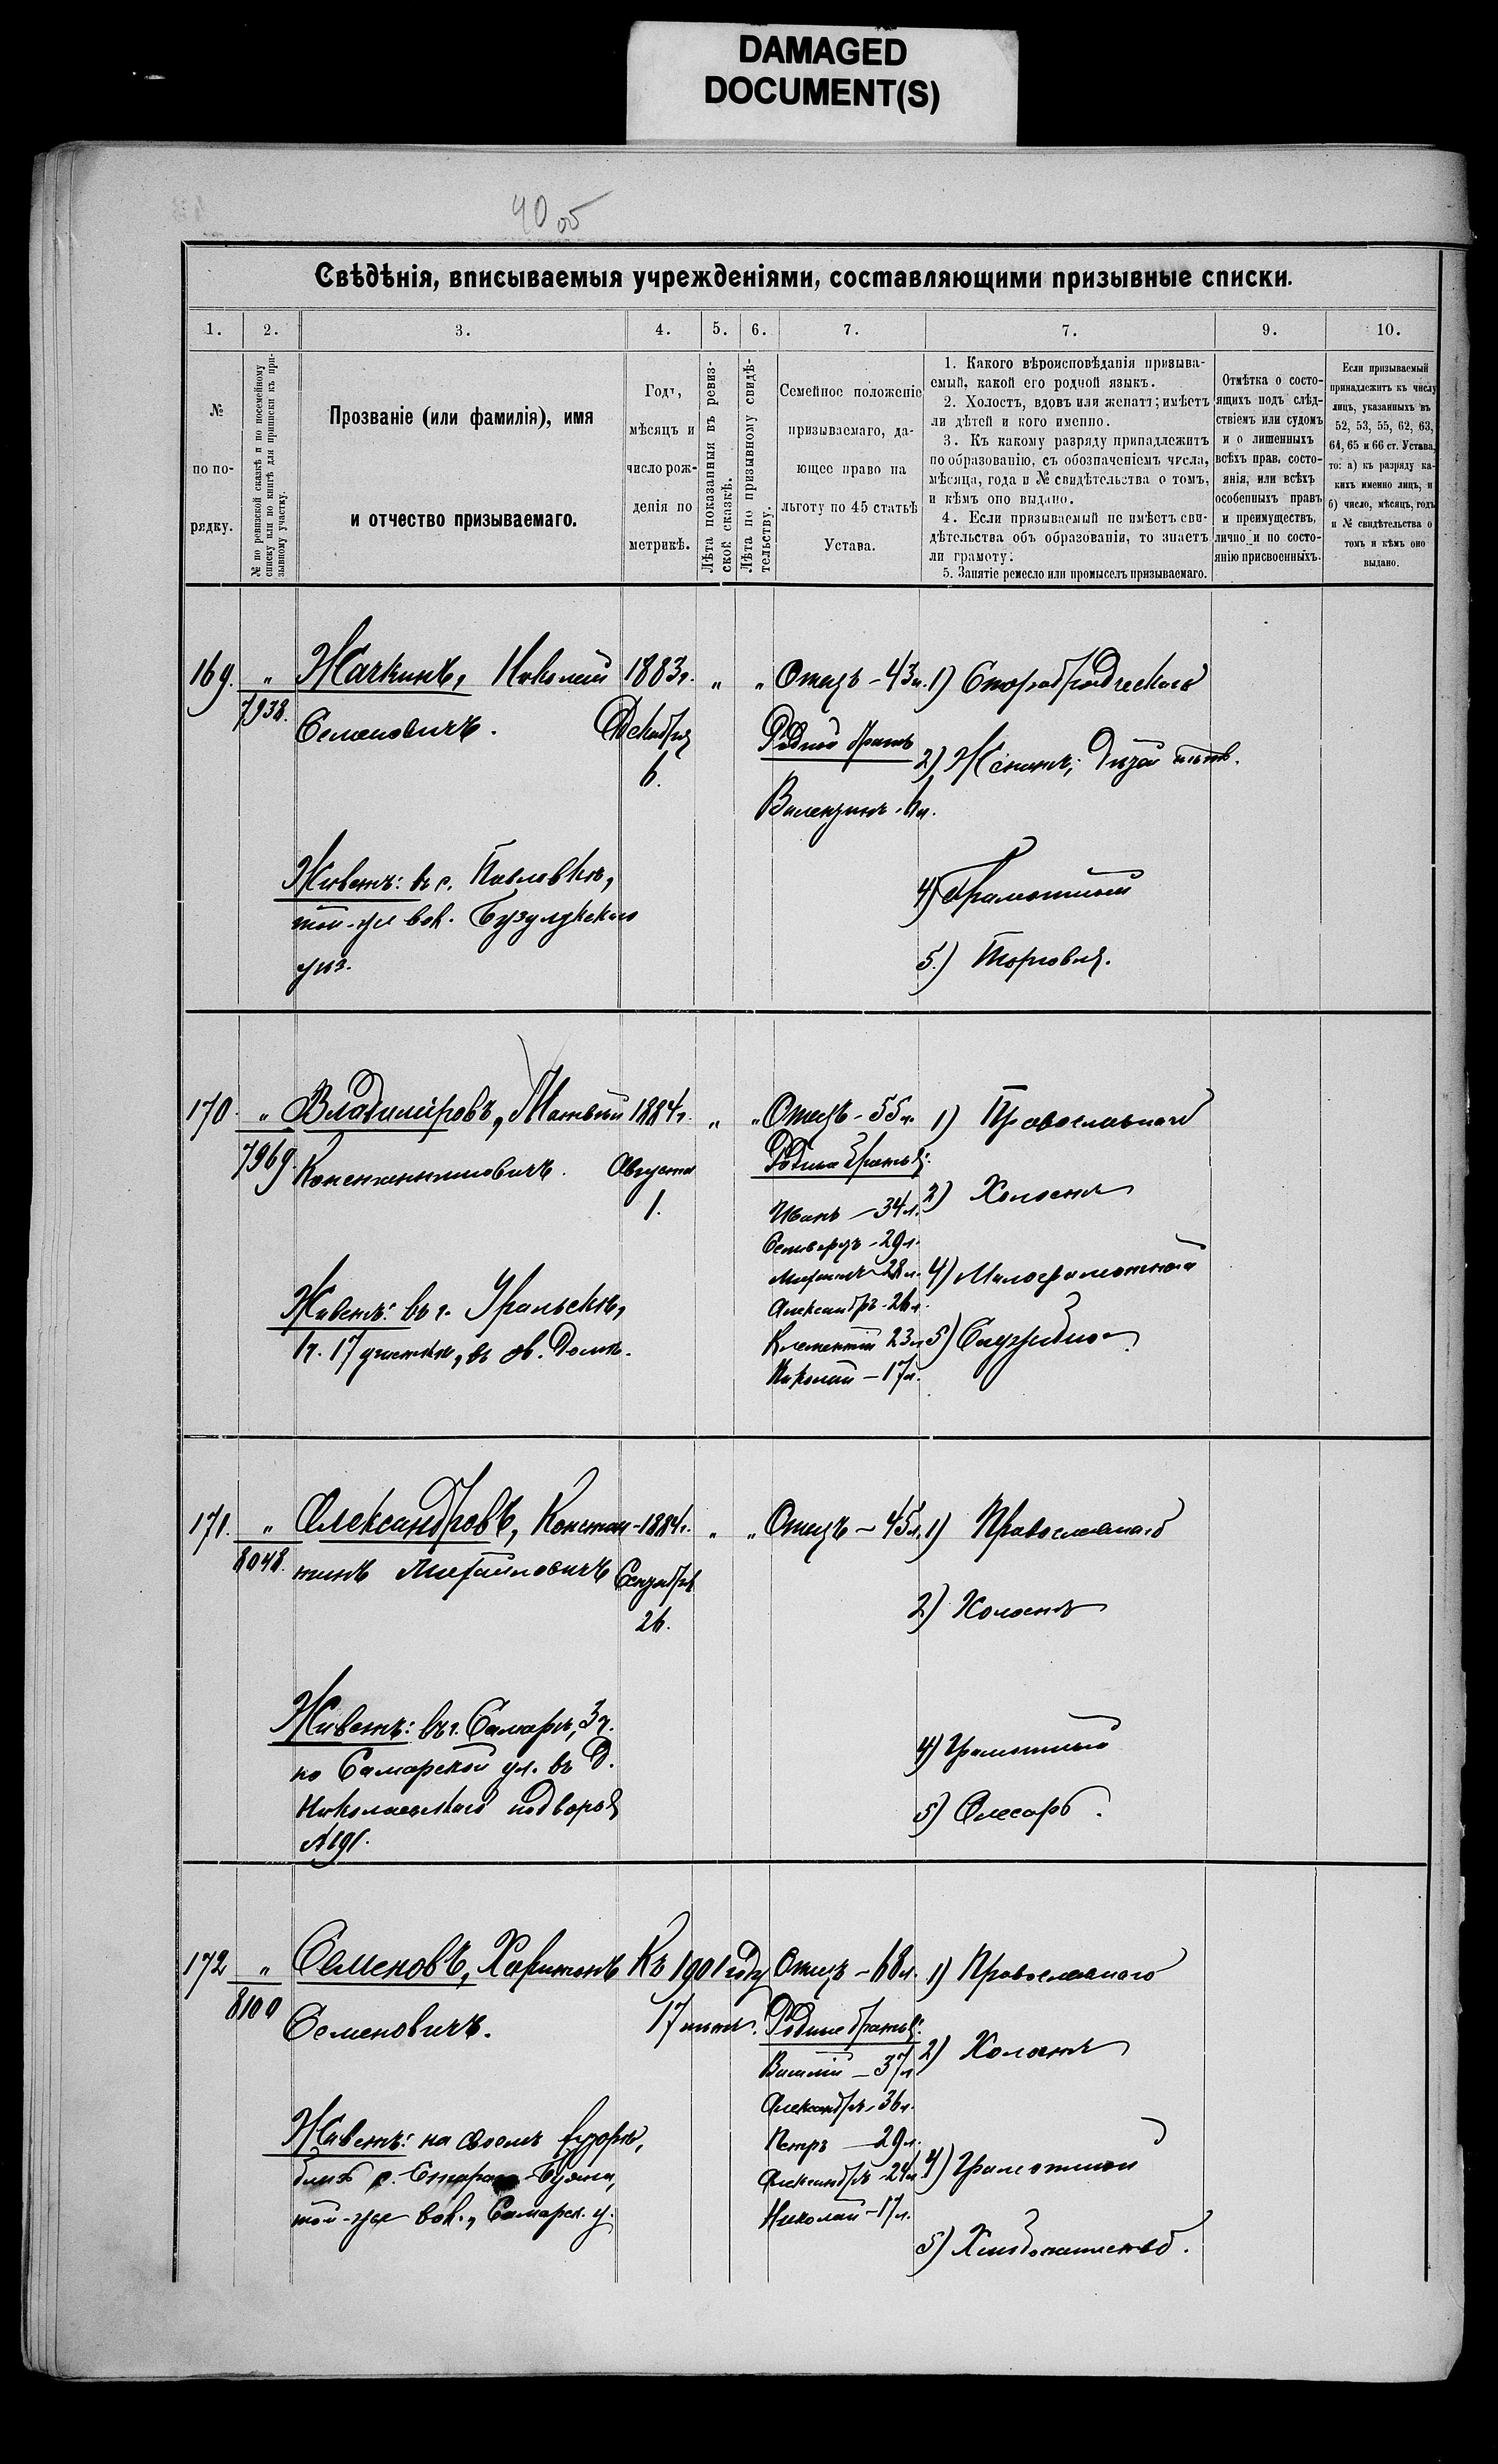 DAMAGED
DOCUMENT(S)
40 об
Свѣдѣнія, вписываемыя учрежденіями, составляющими призывные списки.
1.
2.
3.
4.
5.
6.
7.
7.
9.
10.
№
по по-
рядку.
№ по ревизской сказкѣ и по посемейному
списку или по книгѣ для приписки къ при-
зывному участку.
Прозваніе (или фамилія), имя
и отчество призываемаго.
Годъ,
мѣсяцъ и
число рож-
денія по
метрикѣ.
Лѣта показанныя въ ревиз-
ской сказкѣ.
Лѣта по призывному свидѣ-
тельству.
Семейное положеніе
призываемаго, да-
ющее право на
льготу по 45 статьѣ
Устава.
1. Какого вѣроисповѣданія призыва-
емый, какой его родной языкъ.
2. Холостъ, вдовъ или женатъ; имѣетъ
ли дѣтей и кого именно.
3. Къ какому разряду принадлежитъ
по образованію, съ обозначеніемъ числа,
мѣсяца, года и № свидѣтельства о томъ,
и кѣмъ оно выдано.
4. Если призываемый не имѣетъ сви-
дѣтельства объ образованіи, то знаетъ
ли грамоту.
5. Занятіе ремесло или промыселъ призываемаго.
Отмѣтка о состо-
ящихъ подъ слѣд-
ствіемъ или судомъ
и о лишенныхъ
всѣхъ прав, состо-
янія, или всѣхъ
особенныхъ правъ
и преимуществъ,
лично и по состо-
янію присвоенныхъ.
Если призываемый
принадлежитъ къ числу
лицъ, указанныхъ въ
52, 53, 55, 62, 63,
64, 65 и 66 ст. Устава,
то: а) къ разряду ка-
кихъ именно лицъ, и
б) число, мѣсяцъ, годъ
и № свидѣтельства о
томъ и кѣмъ оно
выдано.
169. " Жачкинъ, Николай 1883г. " " Отецъ - 43л. 1) Старообрядческаго
7938. Семеновичъ. Декабря
6.
Родной братъ
2) Женатъ; дѣтей нѣтъ.
Валентинъ - 6л.
Живетъ: въ с. Павловкѣ,
той-же вол. Бузулукскаго
уѣз.
4) Грамотный
5.) Торговля.
170. " Владиміровъ, Матвѣй 1884г. " " Отецъ - 55л. 1) Православнаго
7969. Константиновичъ. Августа
1.
Родные братья:
2) Холостъ
Иванъ - 34л.
29л.
Михаилъ - 28л.
Александръ - 26л.
Клементій 23л.
Николай - 17л.
4) Малограмотный
5) Служба
Живетъ: въ г. Уральскѣ,
1ч. 17 участка, въ св. домѣ.
171. " Александровъ, Констан- 1884г. " " Отецъ - 45л. 1) Православнаго
8048. тинъ Михайловичъ Сентября
26.
2) Холостъ
Живетъ: въ г. Самарѣ, 3ч.
по Самарской ул. въ д.
Николаевскаго подворья
№ 191.
4) Грамотный
5) Слесарь.
172 " Семеновъ, Харитонъ Къ 1901 году Отецъ - 68л. 1) Православнаго
8100 Семеновичъ. 17 лѣтъ.
Родные братья:
2) Холостъ
Василій - 37л.
Александръ - 36л.
Петръ - 29л.
Александръ - 24л.
Николай - 17л.
4) Грамотный
5) Хлѣбопашество.
Живетъ: на своемъ хуторѣ,
близъ с. Стараго-Буяна,
той-же вол., Самарск. у.